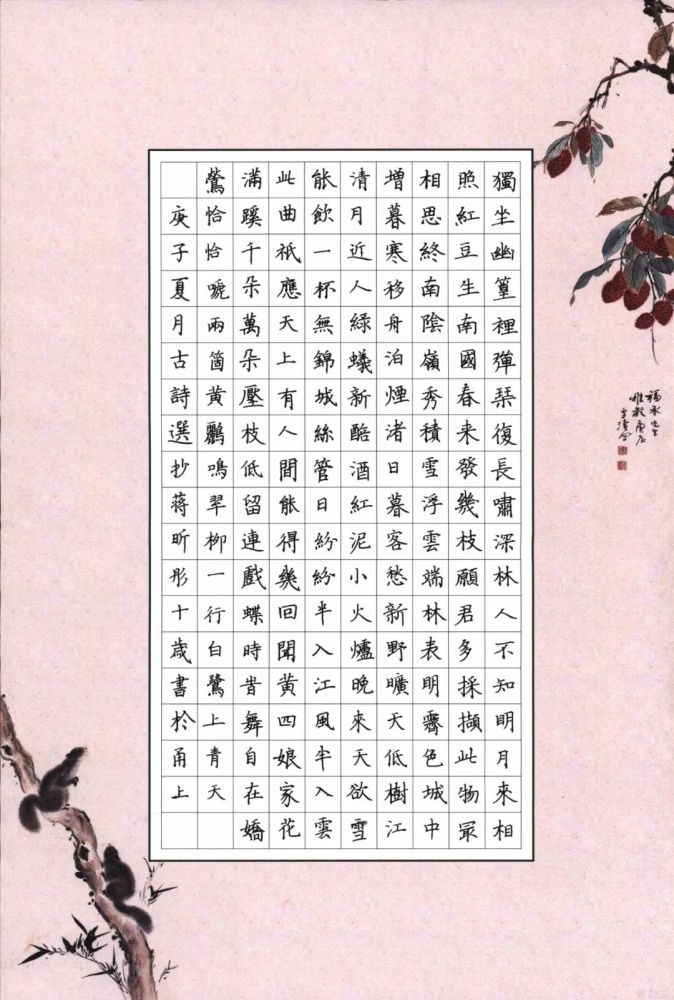 獨坐幽篁裡彈琹復長嘯深林人不知明月來相
照紅豆生南國春来發幾枝願君多採擷此物冣
相思終南陰嶺秀積雪浮雲端林表明霽色城中
増暮寒移舟泊煙渚日暮客愁新野曠天低樹江
清月近人綠蟻新醅酒紅泥小火爐晚來天欲雪
能飲一杯無錦城絲管日紛紛半入江風半入雲
此曲祇應天上有人間能得幾回聞黃四娘家花
滿蹊千朵萬朵壓枝低留連戲蝶時旹舞自在嬌
鶯恰恰嗁兩箇黃鸝鳴翠柳一行白鷺上青天
庚子夏月古詩選抄蒋昕彤十歲書於甬上